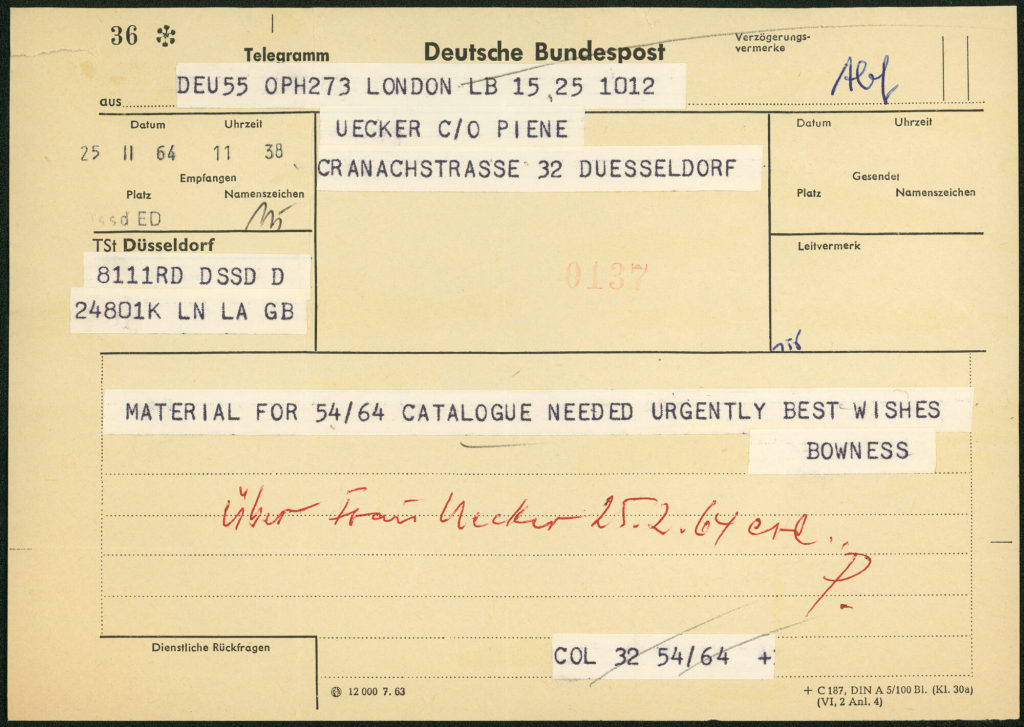 36 ✻
Telegramm
Deutsche Bundespost
Verzögerungs-
vermerke
DEU55 OPH273 LONDON LB 15 25 1012
aus
Datum Uhrzeit
25 II 64 11 38
Empfangen
Platz Namenszeichen
ssd ED
TSt Düsseldorf
8111RD DSSD D
24801K LN LA GB
UECKER C/O PIENE
CRANACHSTRASSE 32 DUESSELDORF
0137
Datum Uhrzeit
Gesendet
Platz Namenszeichen
Leitvermerk
MATERIAL FOR 54/64 CATALOGUE NEEDED URGENTLY BEST WISHES
BOWNESS
über Frau Uecker 25.2.64
P.
Dienstliche Rückfragen
COL 32 54/64 +
12 000 7. 63
+ C 187, DIN A 5/100 Bl. (Kl. 30a)
(VI, 2 Anl. 4)